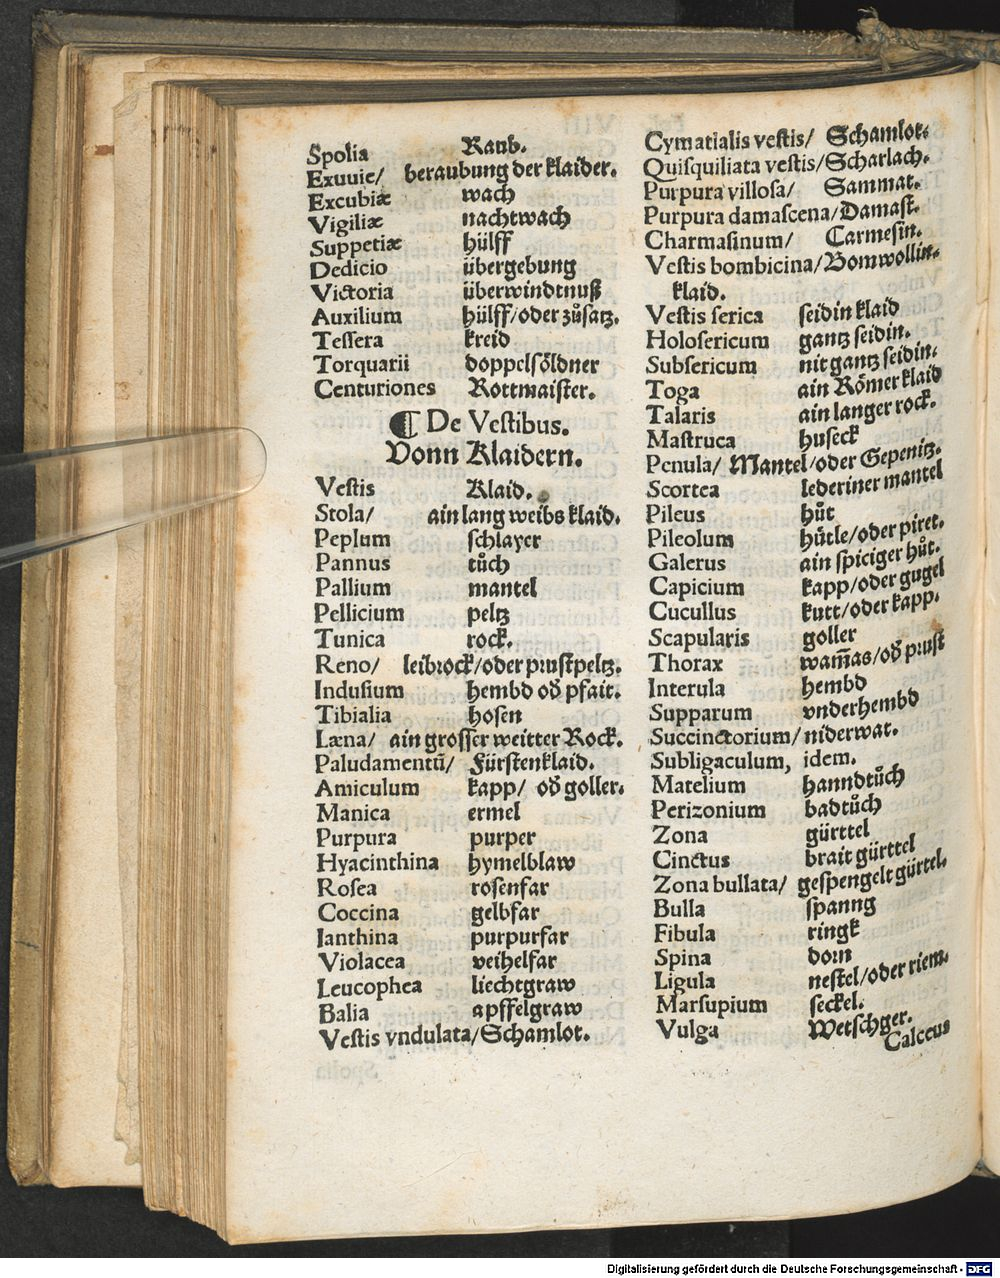 Spolia Raub.
Exuuie/ beraubung der klaider.
Excubiæ wach
Vigiliæ nachtwach
Suppetiæ hülff
Dedicio übergebung
Victoria überwindtnuß
Auxilium hülff/oder zůsatz.
Tessera kreid
Torquarii doppelsöldner
Centuriones Rottmaister.
¶ De Vestibus.
Vonn Klaidern.
Vestis Klaid.
Stola/ ain lang weibs klaid.
Peplum schlayer
Pannus tůch
Pallium mantel
Pellicium peltz
Tunica rock.
Reno/ leibrock/oder prustpeltz.
Indusium hembd od̕ pfait.
Tibialia hosen
Læna/ ain grosser weitter Rock.
Paludamentū/ Fürstenklaid.
Amiculum kapp/ od̕ goller.
Manica ermel
Purpura purper
Hyacinthina hymelblaw
Rosea rosenfar
Coccina gelbfar
Ianthina purpurfar
Violacea veihelfar
Leucophea liechtgraw
Balia apffelgraw
Vestis vndulata/Schamlot.
Cymatialis vestis/ Schamlot.
Quisquiliata vestis/Scharlach.
Purpura villosa/ Sammat.
Purpura damascena/Damast.
Charmasinum/ Carmesin.
Vestis bombicina/Bomwollin-
klaid.
Vestis serica seidin klaid
Holosericum gantz seidin.
Subsericum nit gantz seidin.
Toga ain Römer klaid
Talaris ain langer rock.
Mastruca huseck
Penula/ Mantel/oder Gepenitz.
Scortea lederiner mantel
Pileus hůt
Pileolum hůtle/oder piret.
Galerus ain spiciger hůt.
Capicium kapp/oder gugel
Cucullus kutt/oder kapp.
Scapularis goller
Thorax wam̄as/od̕ prust
Interula hembd
Supparum vnderhembd
Succinctorium/ niderwat.
Subligaculum, idem.
Matelium hanndtůch
Perizonium badtůch
Zona gürttel
Cinctus brait gürttel
Zona bullata/ gespengelt gürtel.
Bulla spanng
Fibula ringk
Spina dorn
Ligula nestel/oder riem.
Marsupium seckel.
Vulga Wetschger.
Calceus
Digitalisierung gefördert durch die Deutsche Forschungsgemeinschaft - DFG